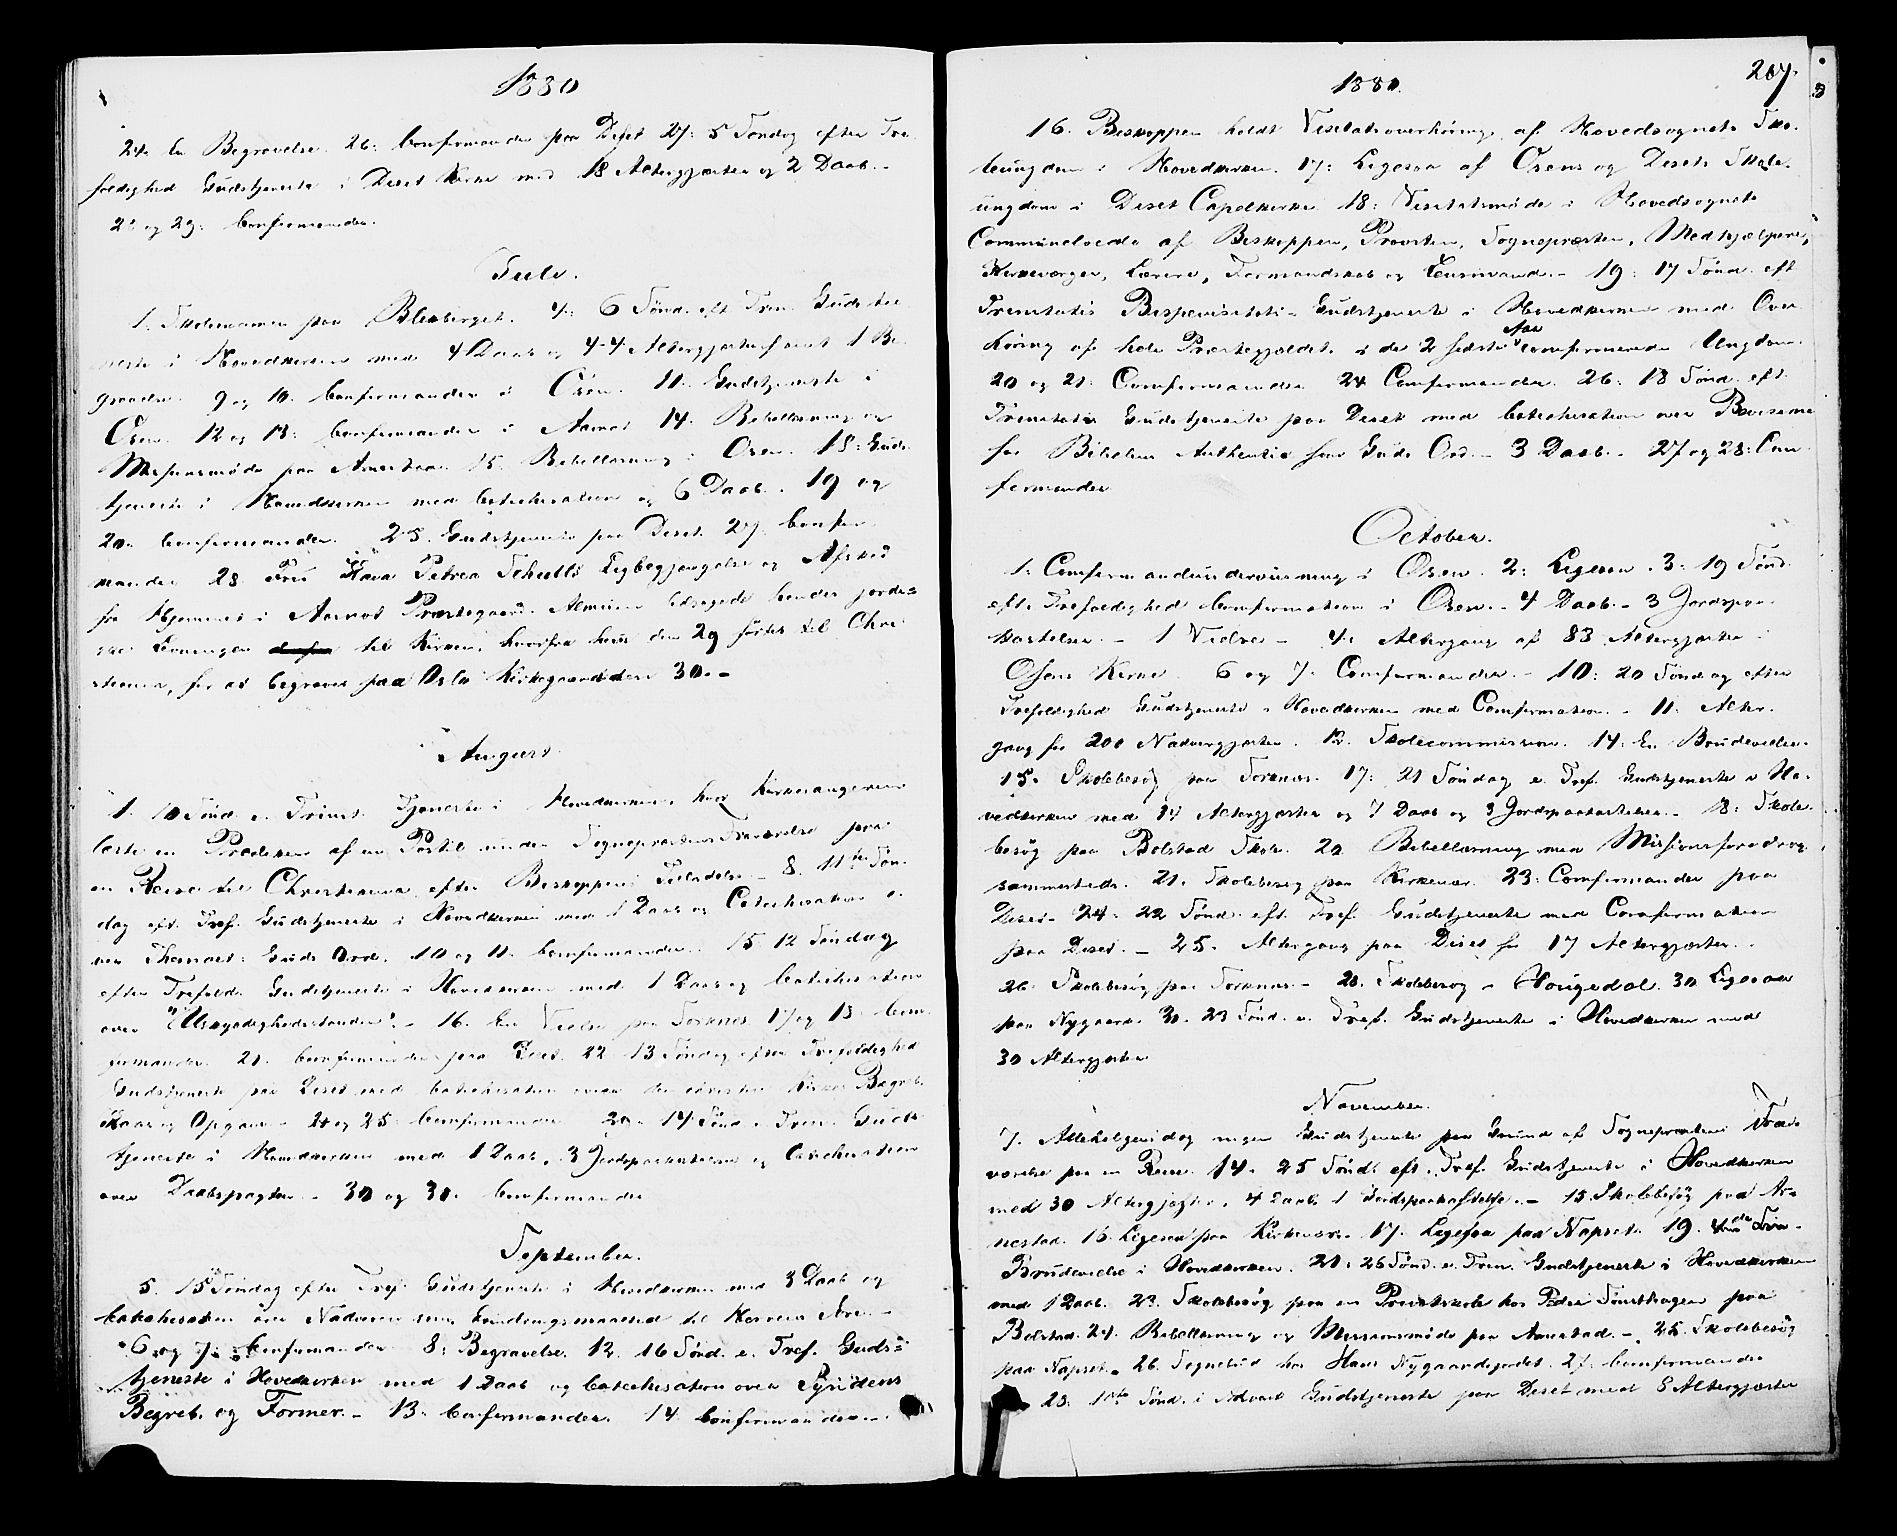 1880
24. En Begravelse. 26. Confirmander paa Deset 27: 5 Søndag efter Tre
foldighed Gudstjeneste i Deset Kirke med 18 Altergjæster og 2 Daab. -
og 29: Confirmander.
Juli.
1. paa Blekberget. 4: 6 Sønd. eft. Trin. Gudstje
neste i Hovedkirken med 4 Daab og 44 Altergjæster samt 1 Be
9 og 10. Confirmander i Osen. 11. Gudstjeneste i
Osen. 12 og 13: Confirmander i Aamot 14. Bibellæsning og
Missionsmøde paa Arnestad 15. Bibellæsning i Osen. 18: Guds
tjeneste i Hovedkirken med Catechisation og 6 Daab. 19 og
20. Confirmander. 25. Gudstjeneste paa Deset. 27. Confir
mander 28. Petrea Schultz Ligbegjængelse og Afsked
fra Hjemmet i Aamot Præstegaard. Almuen ledsagede hendes jorde=
til Kirken, hvorfra hun den 29 førtes til Chri
stiania, for at begraves paa Oslo Kirkegaard den 30. -
August.
1. 10 Sønd. e. Trinit. Tjeneste i Hovedkirken, hvor Kirkesangeren
læste en Prædiken af en Postil under Sognepræstens Fraværelse paa
en Reise til Christiania efter Biskoppens Tilladelse. - 8. 11te Søn
dag eft. Tref. Gudstjeneste i Hovedkirken med 1 Daab og Catechisation o
ver Themaet: Guds Ord. 10 og 11. Confirmander. 15. 12 Søndag
efter Trefold. Gudstjeneste i Hovedkirken med 1 Daab og Catechisation
over "Uskyldighedsstanden". - 16. En Vielse paa Torknes. 17 og 18. Con
firmander. 21. Confirmander paa Deset. 22. 13 Søndag efter Trefoldighed
Gudstjeneste paa Deset med Catechisation over den christne Kirkes Begreb,
Kaar og Opgave - 24 og 25. Confirmander 29. 14 Sønd. e. Trin. Guds
tjeneste i Hovedkirken med 1 Daab, 3 Jordspaakastelser og Catechisation
over Daabspagten. - 30 og 30. Confirmander
September.
5. 15 Søndag efter Tref. Gudstjeneste i Hovedkirken med 3 Daab og
Catechisation over Nadveren som til Herrens Ære. -
6 og 7. Confirmander 8: Begravelse. 12. 16 Sønd. e. Tref. Guds=
tjeneste i Hovedkirken med 1 Daab og Catechisation over Syndens
Begreb. og Former. - 13. Confirmander. 14 Confirmander.
1880.
207.
16. Biskoppen holdt Visitatsoverhøring af Hovedsognets Sko-
leungdom i Hovedkirken. 17: Ligesaa af Osens og Desets Skole-
ungdom i Deset Capelkirke 18: Visitatsmøde i Hovedsognets
Communelocale af Biskoppen, Provsten, Sognepræsten, Medhjælpere,
Kirkeværger, Lærere, Formandskab og Lensmand. - 19: 17 Sønd. eft
Trinitatis Bispevisitats-Gudstjeneste i Hovedkirken med Over
høring af hele Præstegjældets i de 2 sidste Aar confirmerede Ungdom.
20 og 21: Confirmander 24 Confirmander. 26: 18 Sønd. eft
Trinitatis Gudstjeneste paa Deset med Catechisation over Beviserne
for Bibelens Authentie som Guds Ord. - 3 Daab. - 27 og 28: Con
firmander
October.
1: Confirmandundervisning i Osen. 2: Ligesaa. 3: 19 Sønd.
eft. Trefoldighed Confirmation i Osen. - 4 Daab. - 3 Jordspaa-
kastelser. - 1 Vielse - 4: Altergang af 83 Altergjæster i
Osens Kirke. 6 og 7. Confirmander. - 10: 20 Søndag efter
Trefoldighed Gudstjeneste i Hovedkirken med Confirmation. - 11. Alter-
gang for 200 Nadvergjæster. 12. Skolecommission. 14: En Brudevielse.
15. Skolebesøg paa Torknæs. 17: 21 Søndag e. Tref. Gudstjeneste i Ho-
vedkirken med 14 Altergjæster og 7 Daab og 3 Jordspaakastelser. - 18: Skole
besøg paa Bolstad Skole. 20 Bibellæsning med Missionsforedrag
sammesteds. 21. Skolebesøg paa Kirkenær. 23: Confirmander paa
Deset. 24: 22 Sønd. eft. Tref. Gudstjeneste med Confirmation
paa Deset. - 25. Altergang paa Deset for 17 Altergjæster. -
26. Skolebesøg paa Torknæs. - 28. Skolebesøg i Hougedal. 30 Ligesaa
paa Nygaard. 30. 23 Sønd. e. Tref. Gudstjeneste i Hovedkirken med
30 Altergjæster
November.
7. Allehelgensdag ingen Gudstjeneste paa Grund af Sognepræstens Fra-
værelse paa en Reise. 14. 25 Sønd. eft. Tref. Gudstjeneste i Hovedkirken
med 30 Altergjæster. 4 Daab. 1 Jordspaakastelse. - 15. Skolebesøg paa Ar-
nestad. 16. Ligesaa paa Kirkenær. 17. Ligesaa paa Napset. 19.
Brudevielse i Hovedkirken. 21: 26 Sønd. e. Trin. Gudstjeneste i Hovedkirken
med 1 Daab. 23. Skolebesøg paa en Privatskole hos Peder paa
Bolstad. 24. Bibellæsning og Missionsmøde paa Arnestad. - 25. Skolebesøg
paa Napset. 26. Sognebud hos Hans Nygaardsjordet. 27. Confirmander
28. 1ste Sønd. i Advent Gudstjeneste paa Deset med 8 Altergjæster